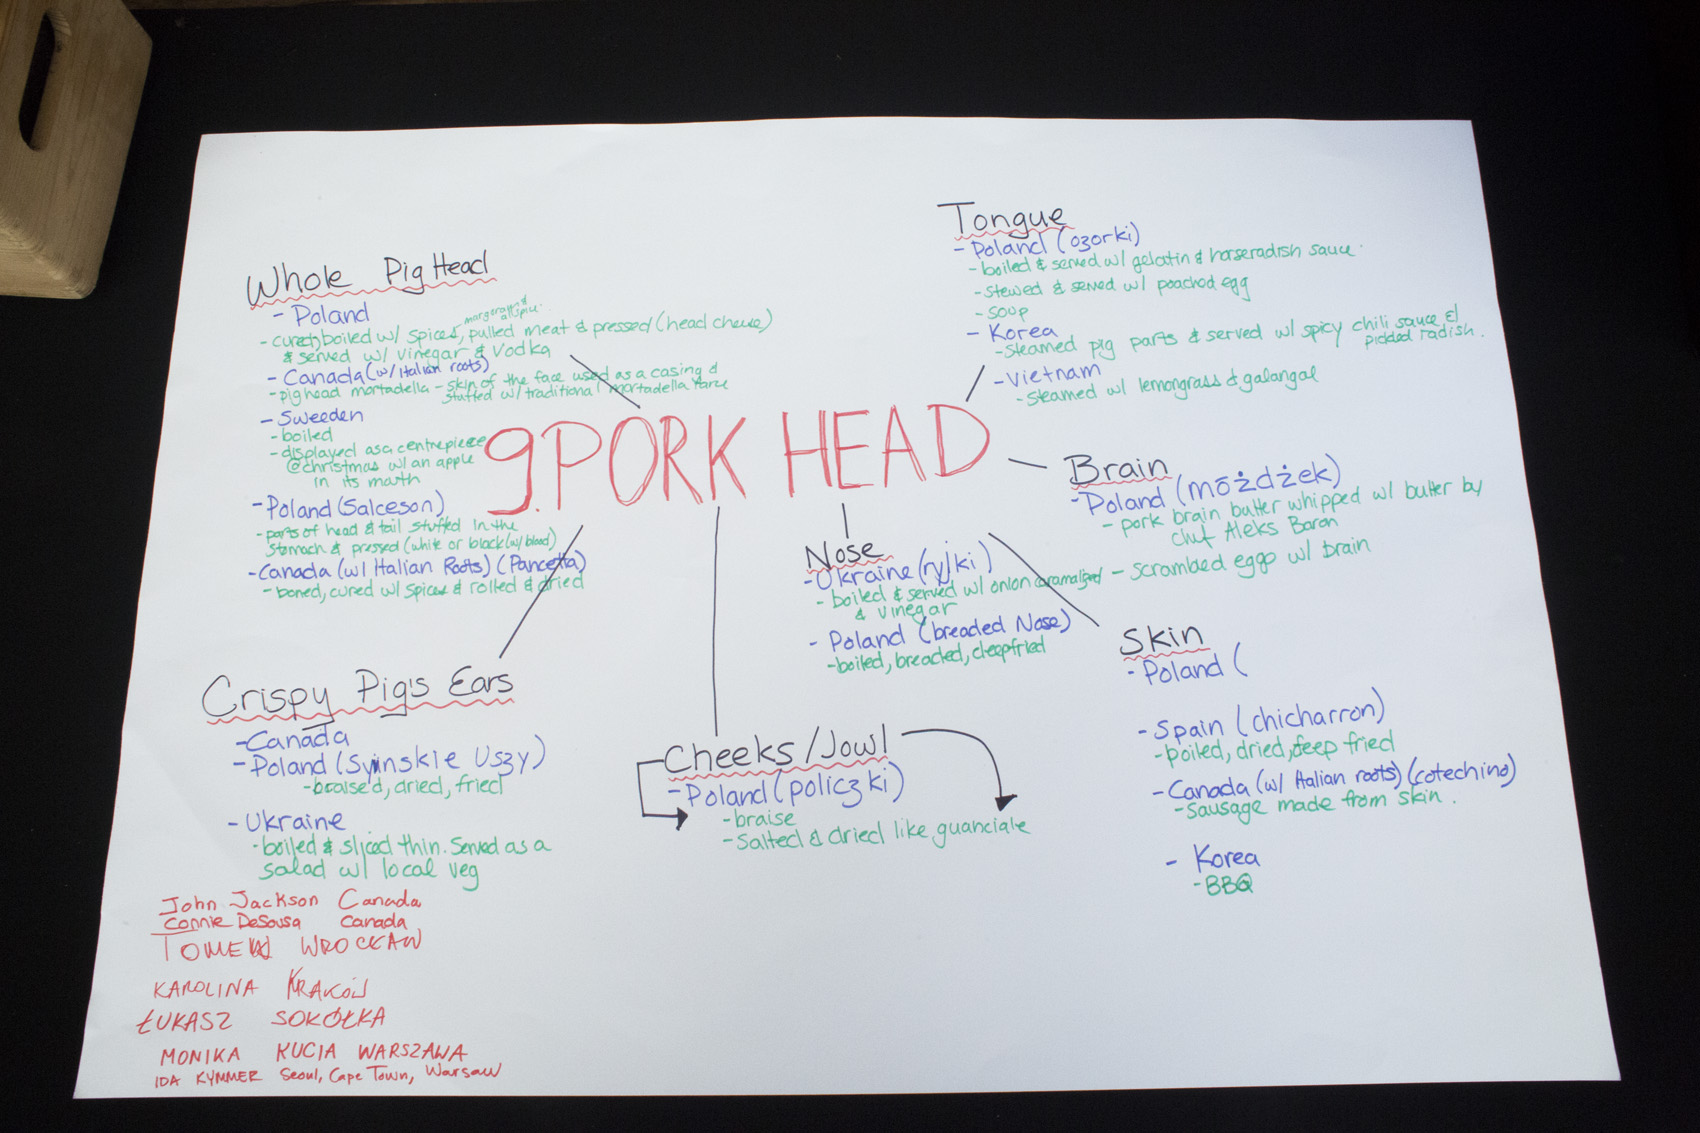 9. PORK HEAD
Whole Pig Head
- Poland
margeram &
allspice
- cured, boiled w/ spices, pulled meat & pressed (head cheese)
& served w/ vinegar & vodka
- Canada (w/ Italian roots)
- pighead mortadella - skin of the face used as a casing &
stuffed w/ traditional mortadella
- Sweeden
- boiled
- displayed as a centrepiece
@christmas w/ an apple
in its mouth
- Poland (Salceson)
- parts of head & tail stuffed in the
stomach & pressed (white or black (w/ blood)
- Canada (w/ Italian Roots) (Pancetta)
- boned, cured w/ spices & rolled & dried
Tongue
- Poland (ozorki)
- boiled & served w/ gelatin & horseradish sauce
- stewed & served w/ poached egg
- soup
- Korea
- steamed pig parts & served w/ spicy chili sauce &
pickled radish.
- Vietnam
- steamed w/ lemongrass & galangal
Brain
- Poland (móżdżek)
- pork brain butter whipped w/ butter by
chef Aleks Baron
- scrambled eggs w/ brain
Nose
- Ukraine (ryjki)
- boiled & served w/ onion caramalized
& vinegar
- Poland (breaded Nose)
- boiled, breaded, deepfried
Skin
- Poland (
- Spain (chicharron)
- boiled, dried, deep fried
- Canada (w/ Italian roots) (cotechino)
- sausage made from skin.
- Korea
- BBQ
Cheeks/Jowl
- Poland (policzki)
- braise
- salted & dried like guanciale
Crispy Pig's Ears
- Canada
- Poland (Syinskie Uszy)
- braise'd, dried, fried
- Ukraine
- boiled & sliced thin. Served as a
salad w/ local veg
John Jackson Canada
Connie DeSousa Canada
TOMEK WROCŁAW
KAROLINA KRAKÓW
ŁUKASZ SOKÓŁKA
MONIKA KUCIA WARSZAWA
IDA KYMMER Seoul, Cape Town, Warsaw